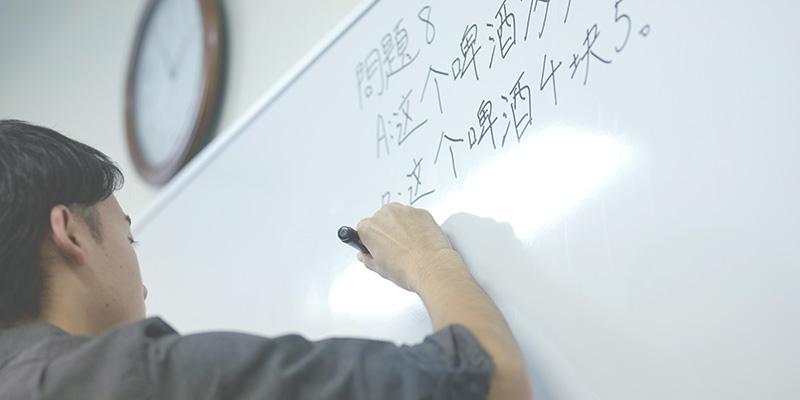 問題8
A:这个啤酒
B:这个啤酒4块5。